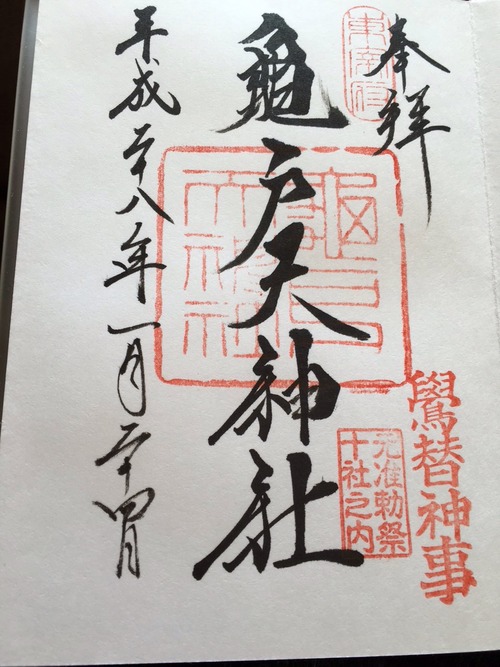 奉拝
東宰府
龜戸天神社
龜戸天神社
元准勅祭
十社之内
鷽替神事
平成二十八年一月二十四日